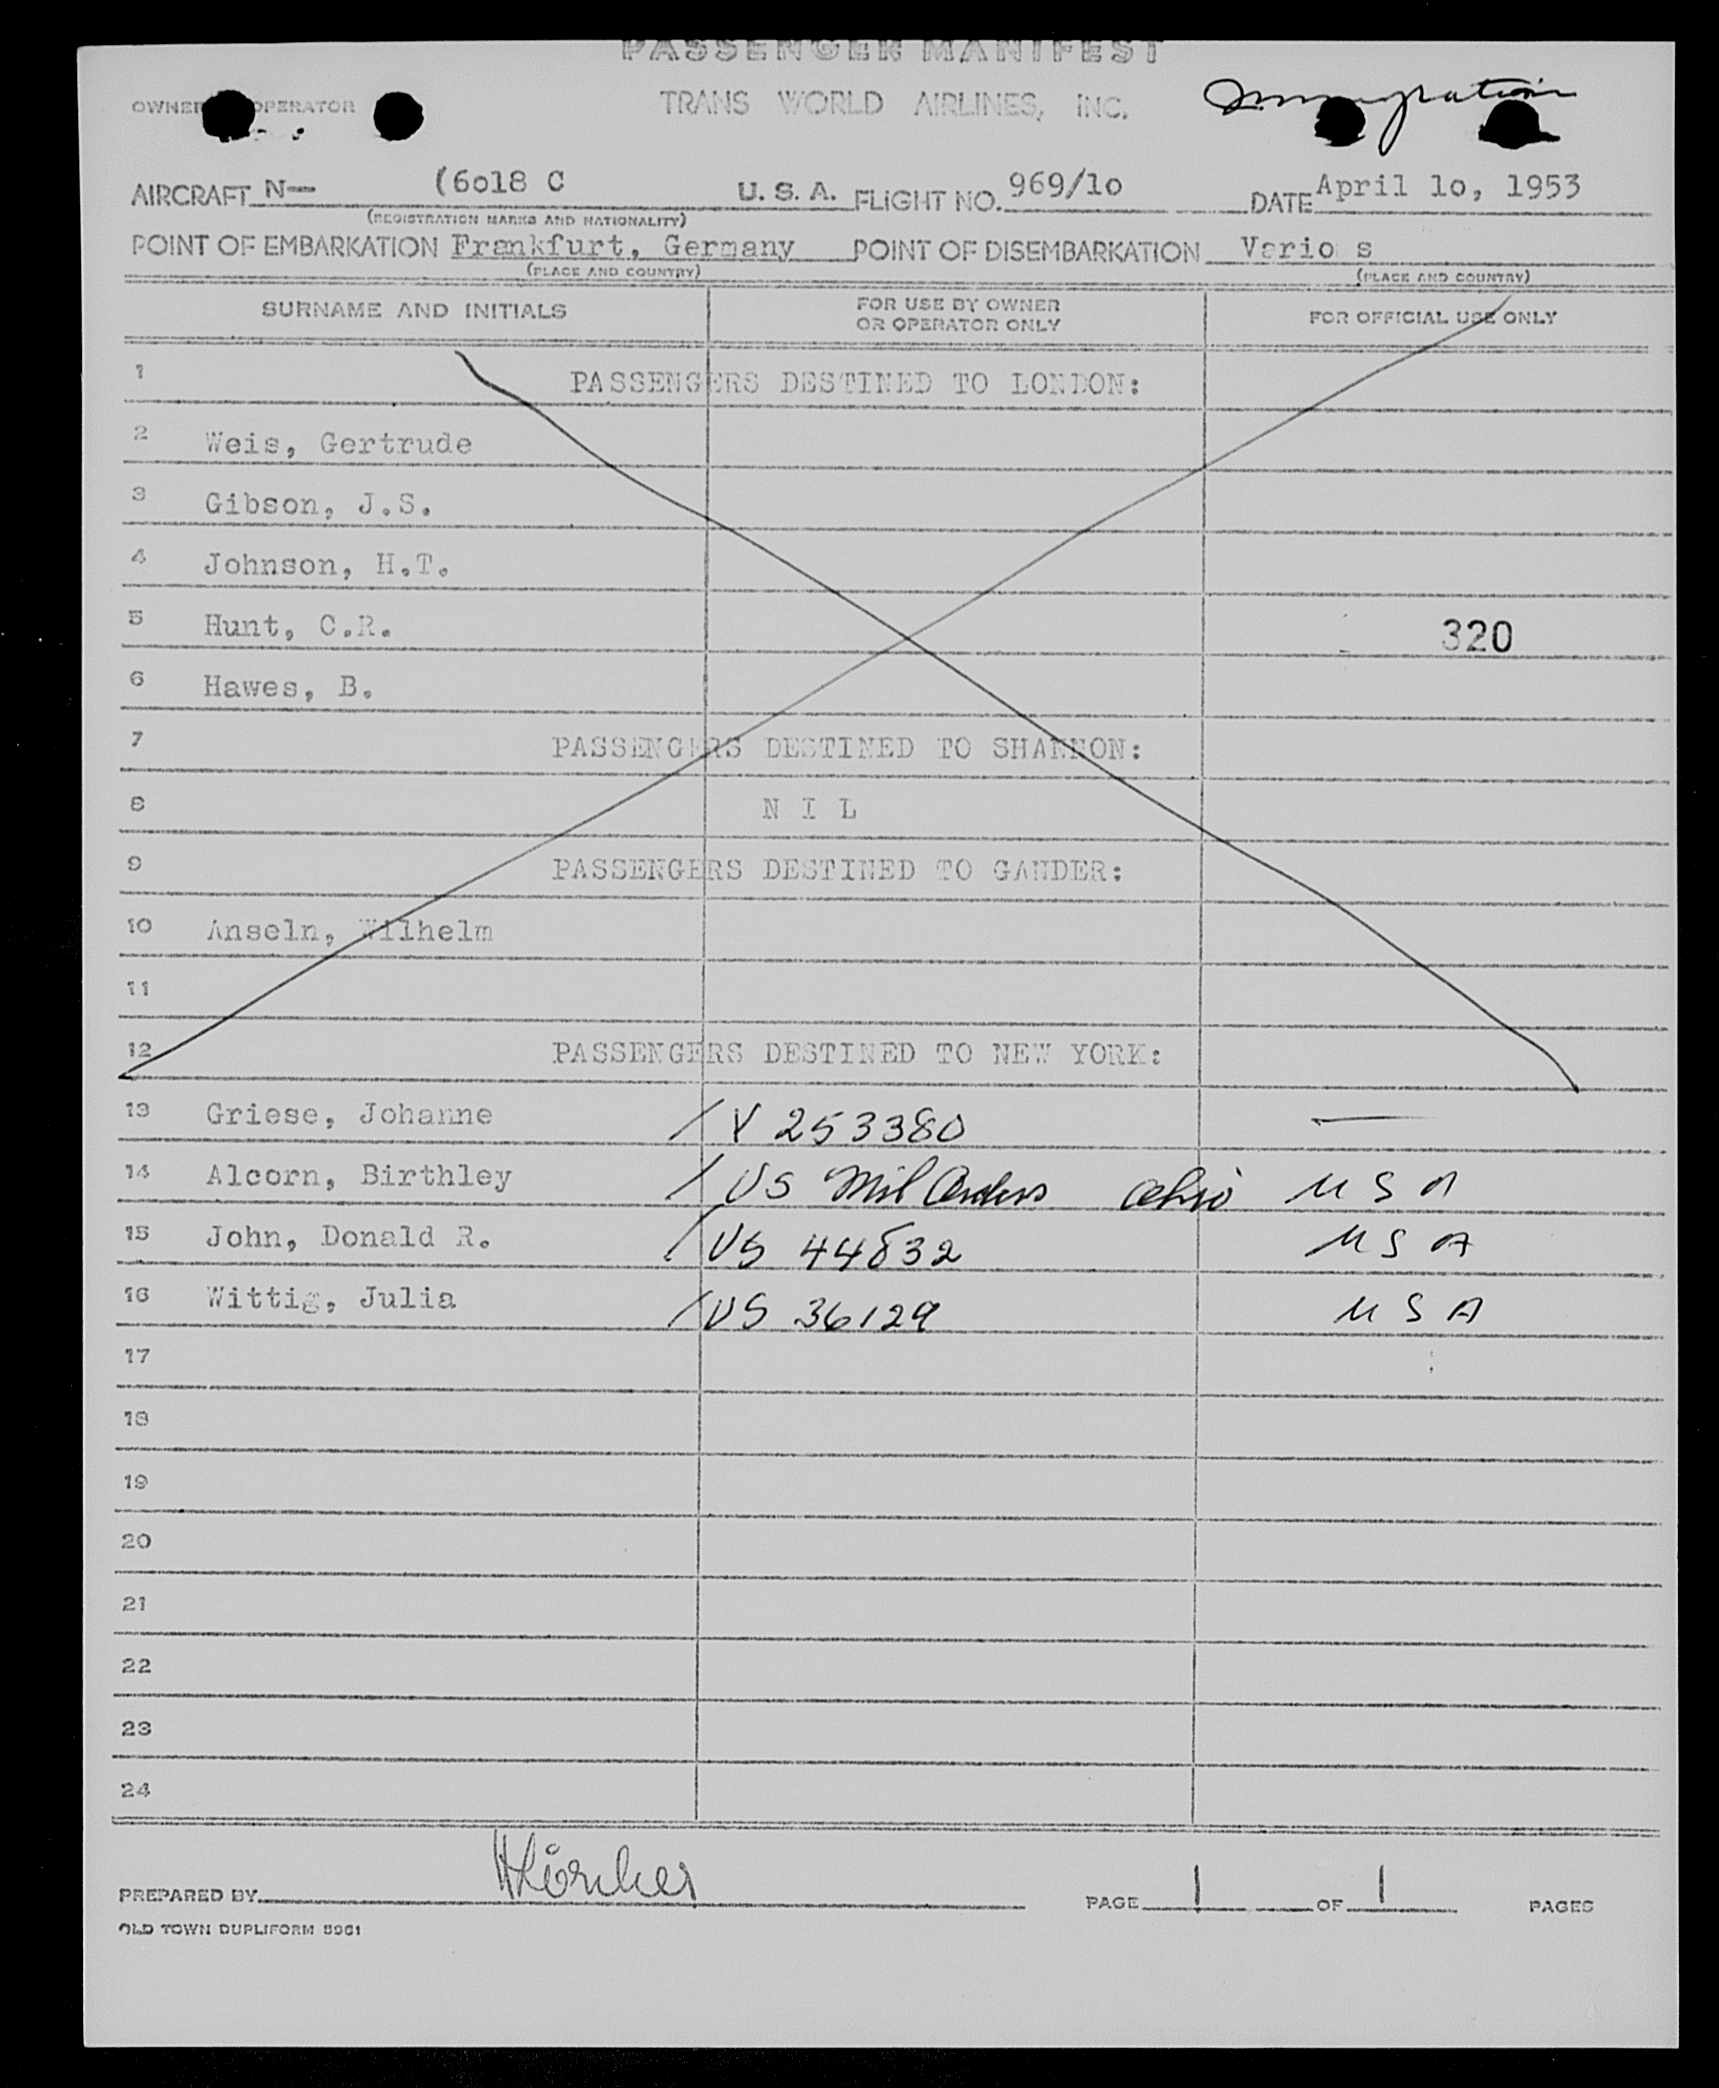 PASSENGER MANIFEST
OWNER OPERATOR TRANS WORLD AIRLINES, INC. Immigration
AIRCRAFT N— (6o18 C U. S. A. FLIGHT NO. 969/1o DATE April 1o, 1953
(REGISTRATION MARKS AND NATIONALITY)
POINT OF EMBARKATION Frankfurt, Germany POINT OF DISEMBARKATION Vario s
(PLACE AND COUNTRY) (PLACE AND COUNTRY)
SURNAME AND INITIALS FOR USE BY OWNER OR OPERATOR ONLY FOR OFFICIAL USE ONLY
1 PASSENGERS DESTINED TO LONDON:
2 Weis, Gertrude
3 Gibson, J.S.
4 Johnson, H.T.
5 Hunt, C.R. 320
6 Hawes, B.
7 PASSENGERS DESTINED TO SHANNON:
8 N I L
9 PASSENGERS DESTINED TO GANDER:
10 Anseln, Wilhelm
11
12 PASSENGERS DESTINED TO NEW YORK:
13 Griese, Johanne / V 253380 —
14 Alcorn, Birthley / US Mil Orders Ohio USA
15 John, Donald R. / US 44832 USA
16 Wittig, Julia / US 36129 USA
17
18
19
20
21
22
23
24
PREPARED BY PAGE 1 OF 1 PAGES
OLD TOWN DUPLIFORM 5961